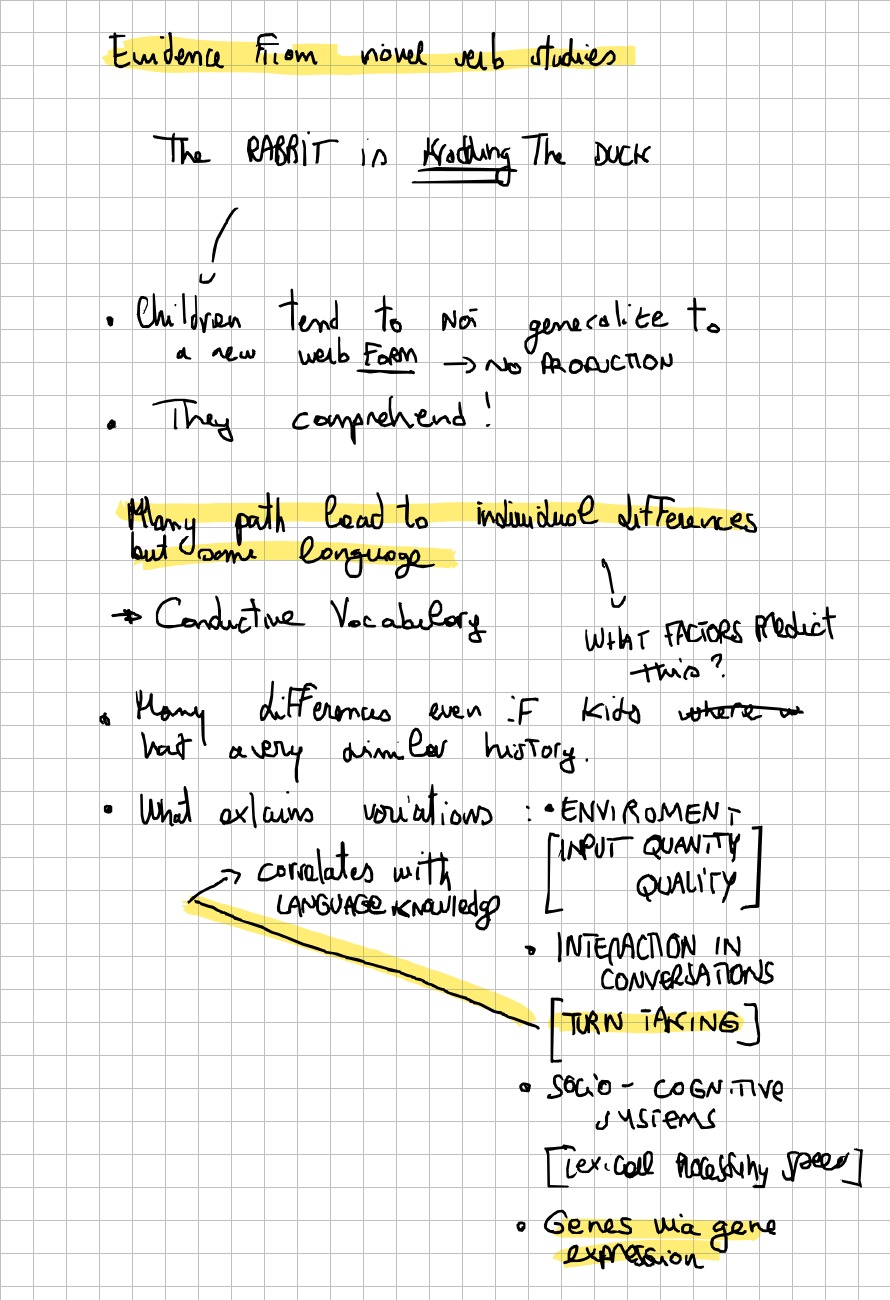 Evidence From novel verb studies
The RABBIT is Kradding The DUCK
• Children tend to not generalize to
a new verb FORM → NO PRODUCTION
• They comprehend!
Many path lead to individual differences
but same language
→ Conductive Vocabulary
WHAT FACTORS Predict
this?
• Many differences even iF kids
had a very similar history.
• What explains variations : • ENVIROMENT
[INPUT QUANTITY
QUALITY]
→ correlates with
LANGUAGE Knowledge
• INTERACTION IN
CONVERSATIONS
[TURN TAKING]
• SOCIO - COGNITIVE
SYSTEMS
[Lexical Processing Speed]
• Genes via gene
expression